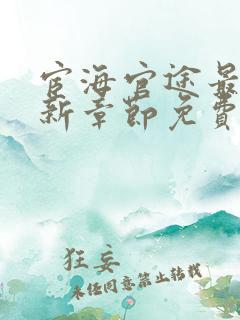 宦海官途最
新章節免費
狂妄
未经同意禁止转载